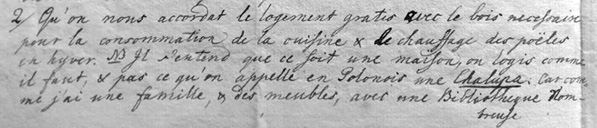 2/ Qu'on nous accordat le logement gratis avec le bois necessaire
pour la consommation de la cuisine & le chauffage des poëles
en hyver. NB Il s'entend que ce soit une maison, ou logis comme
il faut, & pas ce qu'on appelle en Polonois une Chalupa. Car com-
me j'ai une famille, & des meubles, avec une Bibliotheque Nom-
breuse